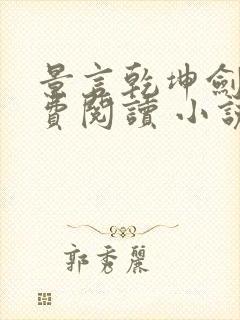 景言乾坤劍
費閱讀 小說
郭秀麗